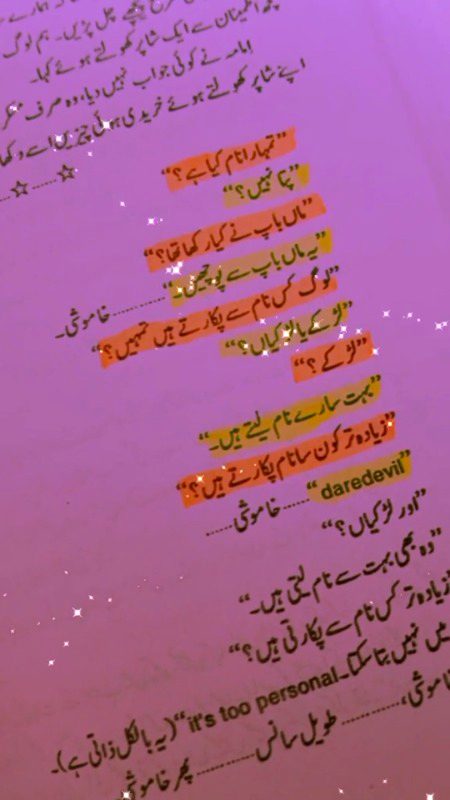 پھر اطمینان سے ایک شاپر کھولتے ہوئے کہا۔
امامہ نے کوئی جواب نہیں دیا، وہ صرف
اپنے شاپر کھولتے ہوئے خریدی ہوئی چیزیں اسے
☆.....☆.....
"تمہارا نام کیا ہے؟"
"پتا نہیں؟"
"ماں باپ نے کیا رکھا تھا؟"
"یہ ماں باپ سے پوچھیں۔"............خاموشی۔
"لوگ کس نام سے پکارتے ہیں تمہیں؟"
"لڑکے یا لڑکیاں؟"
"لڑکے؟"
"بہت سارے نام لیتے ہیں۔"
"زیادہ تر کون سا نام پکارتے ہیں؟"
"daredevil"......خاموشی......
"اور لڑکیاں؟"
"وہ بھی بہت سے نام لیتی ہیں۔"
"زیادہ تر کس نام سے پکارتی ہیں؟"
میں نہیں بتا سکتا۔it's too personal" (یہ بالکل ذاتی ہے)۔
خاموشی، ............طویل سانس............پھر خاموشی